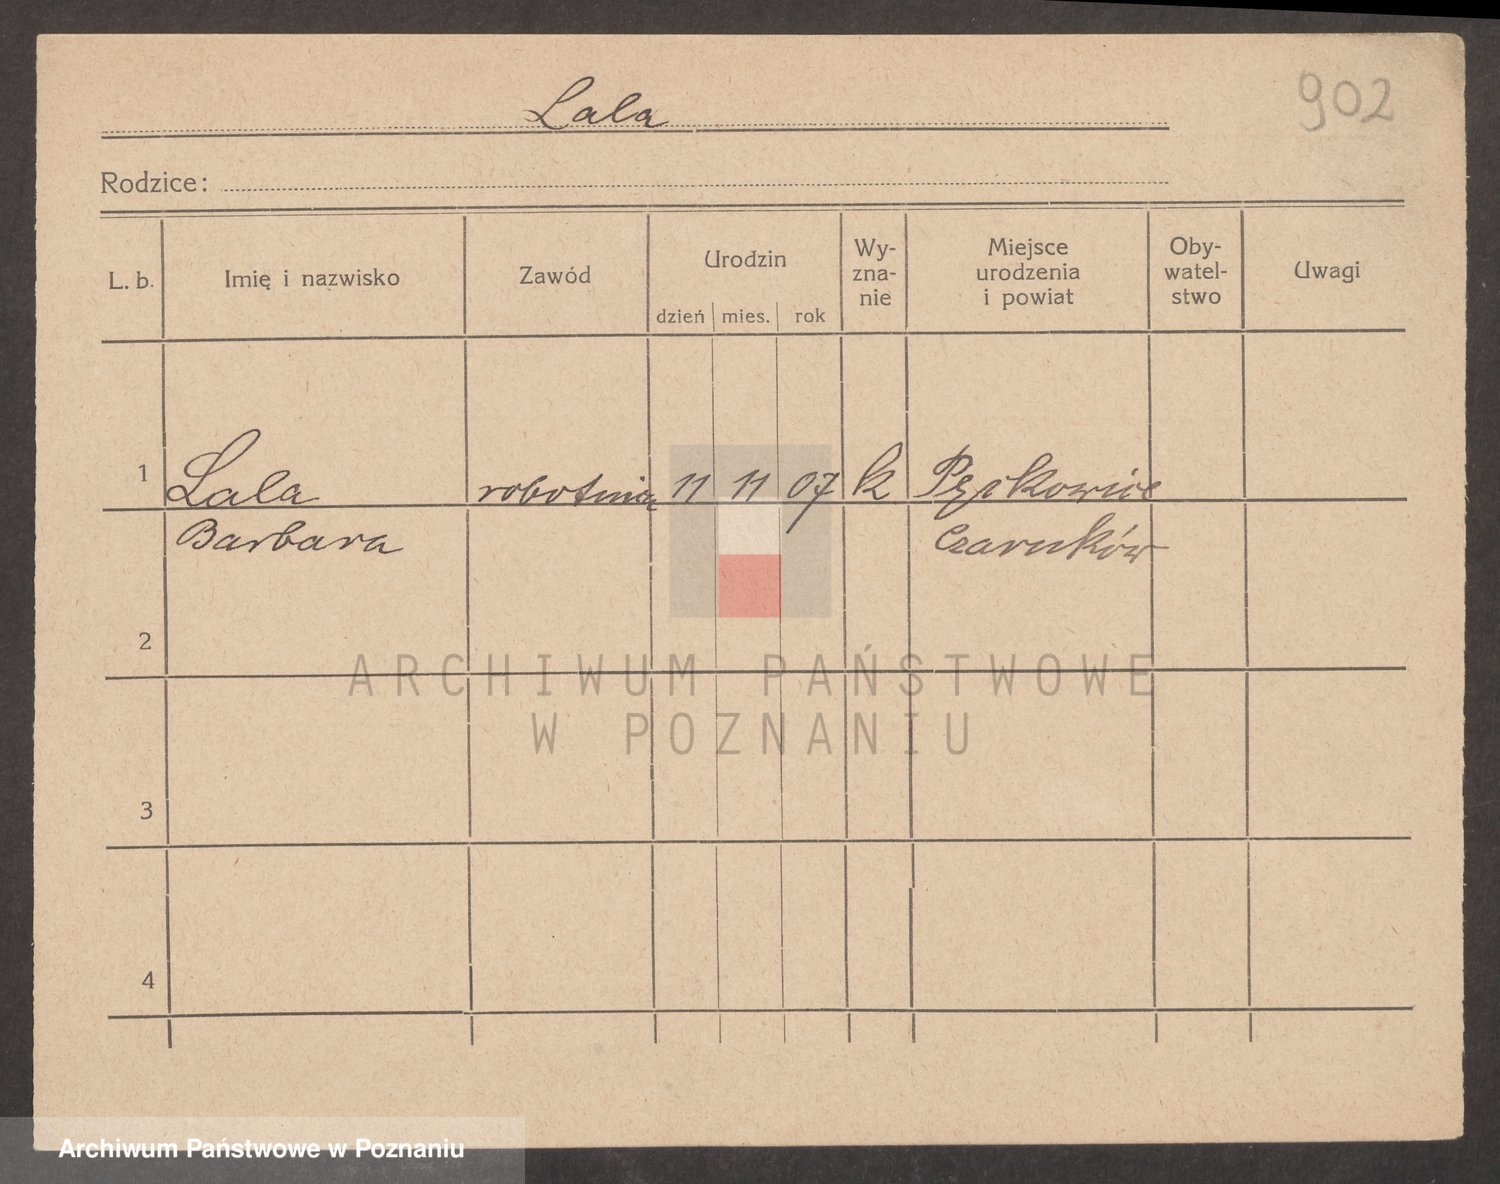 902
Lala
Rodzice:
L. b.
Imię i nazwisko
Zawód
Urodzin
dzień mies. rok
Wy-
zna-
nie
Miejsce
urodzenia
i powiat
Oby-
watel-
stwo
Uwagi
1 Lala 11 11 07 k
Barbara Czarnków
2
3
4
ARCHIWUM PAŃSTWOWE
W POZNANIU
Archiwum Państwowe w Poznaniu